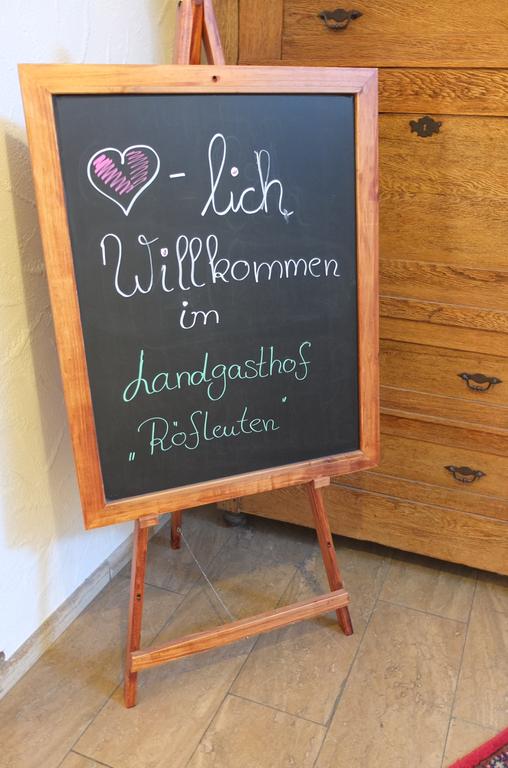 ♥-lich
Willkommen
im
Landgasthof
„Röfleuten"